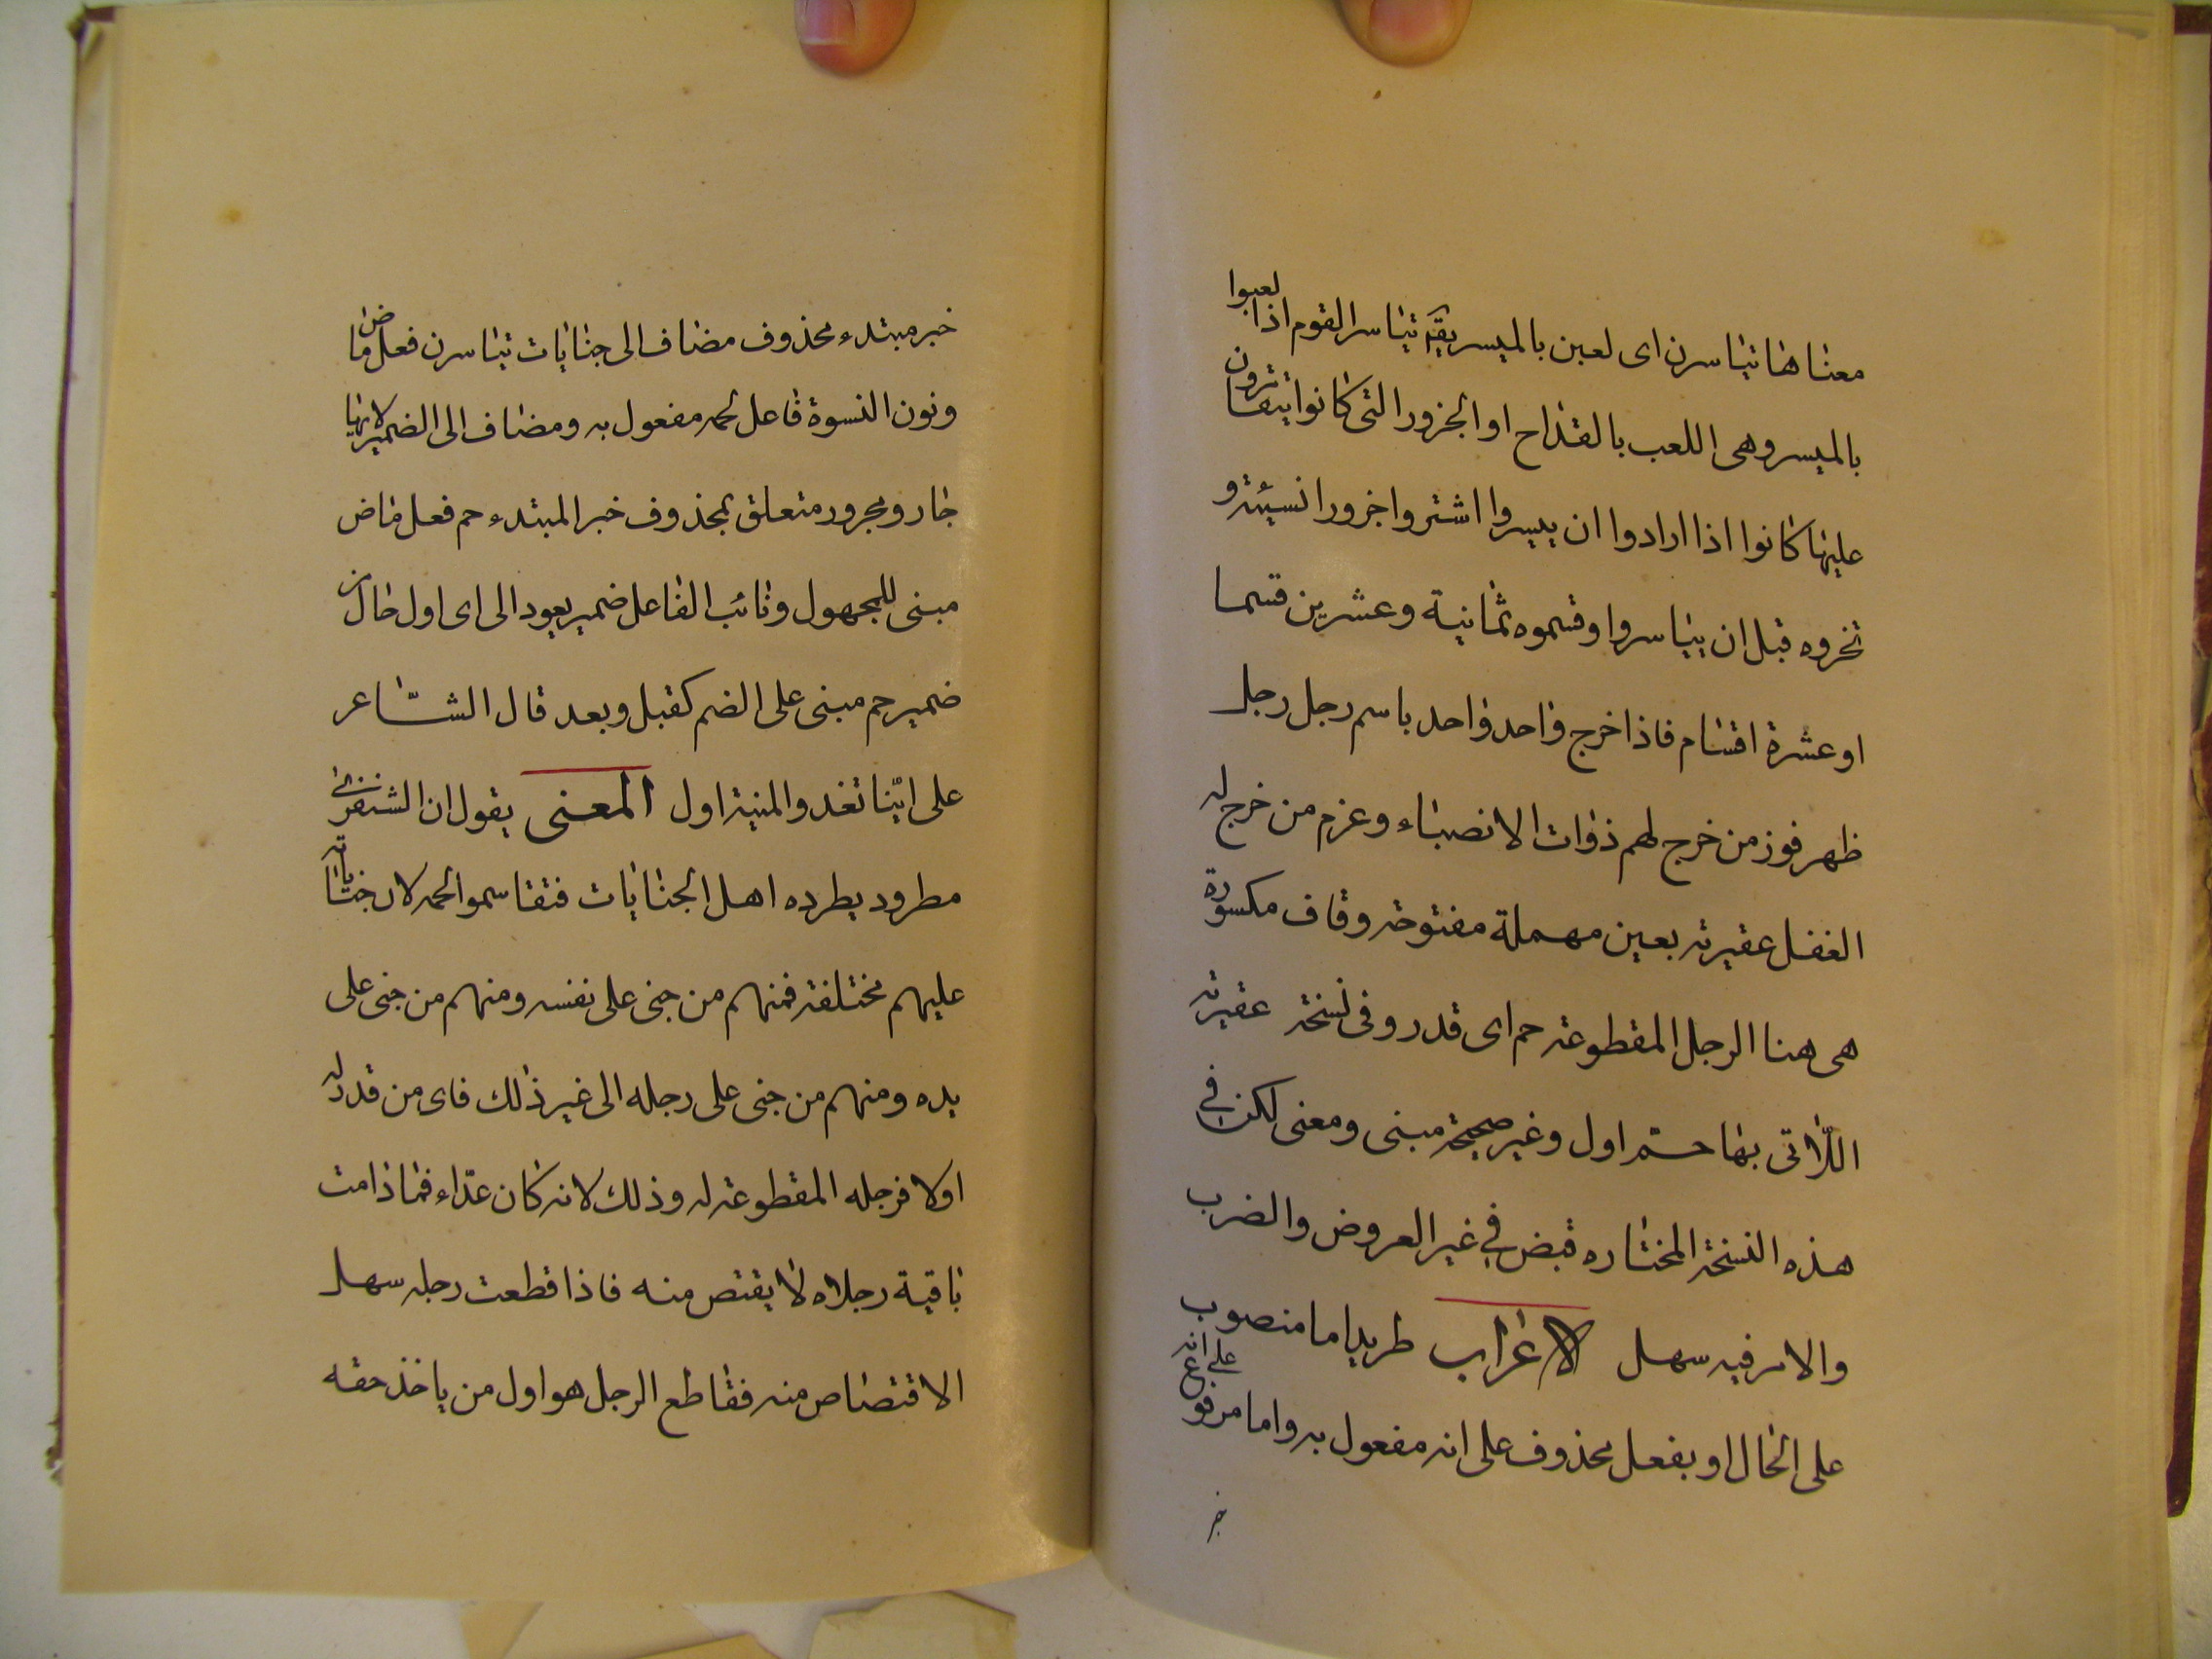 معناها تياسرن اى لعبن بالميسر يقٓ تياسر القوم اذا لعبوا
بالميسر وهى اللعب بالقداح او الجزور التى كانوا يتقامرون
عليها كانوا اذا ارادوا ان ييسروا اشتروا جزورا نسيئة و
نحروه قبل ان ييياسروا وقسموه ثمانية وعشرين قسما
او عشرة اقسام فاذا خرج واحد واحد باسم رجل رجل
ظهر فوز من خرج لهم ذوات الانصباء وغرم من خرج له
الغفل عقيرته بعين مهملة مفتوحة وقاف مكسورة
هى هنا الرجل المقطوعة حم اى قدر وفى نسخة عقيرته
اللّاتى بها حمّ اول وغير صحيحة مبنى ومعنى لكن فى
هذه النسخة المختاره قبض فى غير العروض والضرب
والامر فيه سهل الاعراب طريد اما منصوب
على الحال او بفعل محذوف على انه مفعول به واما مرفوع على انه
خبر
خبر مبتدء محذوف مضاف الى جنايات تياسرن فعل ماض
ونون النسوة فاعل لحمه مفعول به ومضاف الى الضمير لايها
جار ومجرور متعلق بمحذوف خبر المبتدء حم فعل ماض
مبنى للمجهول ونائب الفاعل ضمير يعود الى اى اول حال من
ضمير حم مبنى على الضم كقبل وبعد قال الشّاعر
على ايّنا تغدو المنية اول المعنى يقول ان الشنفرى
مطرود يطرده اهل الجنايات فتقاسموا لحمه لان جناياته
عليهم مختلفة فمنهم من جنى على نفسه ومنهم من جنى على
يده ومنهم من جنى على رجله الى غير ذلك فاى من قدر له
اولا فرجله المقطوعة له وذلك لانه كان عدّاء فما دامت
باقية رجلاه لا يقتص منه فاذا قطعت رجله سهل
الاقتصاص منه فقاطع الرجل هو اول من ياخذ حقه